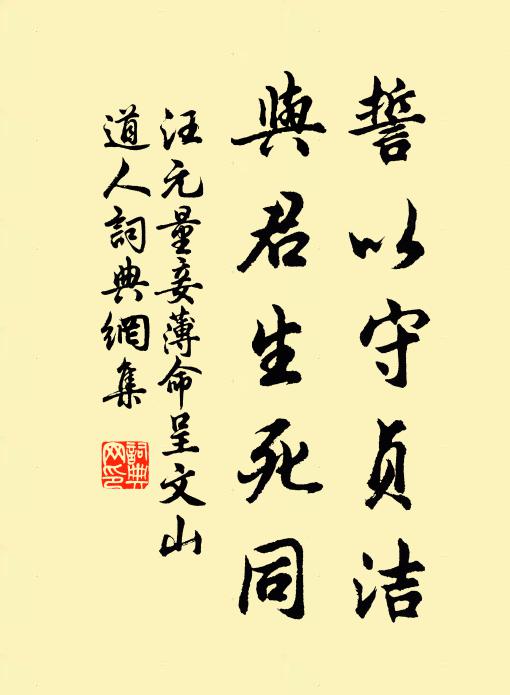 誓以守贞洁
與君生死同
汪元量妾薄命呈文山
道人詞典網集
詞典网印